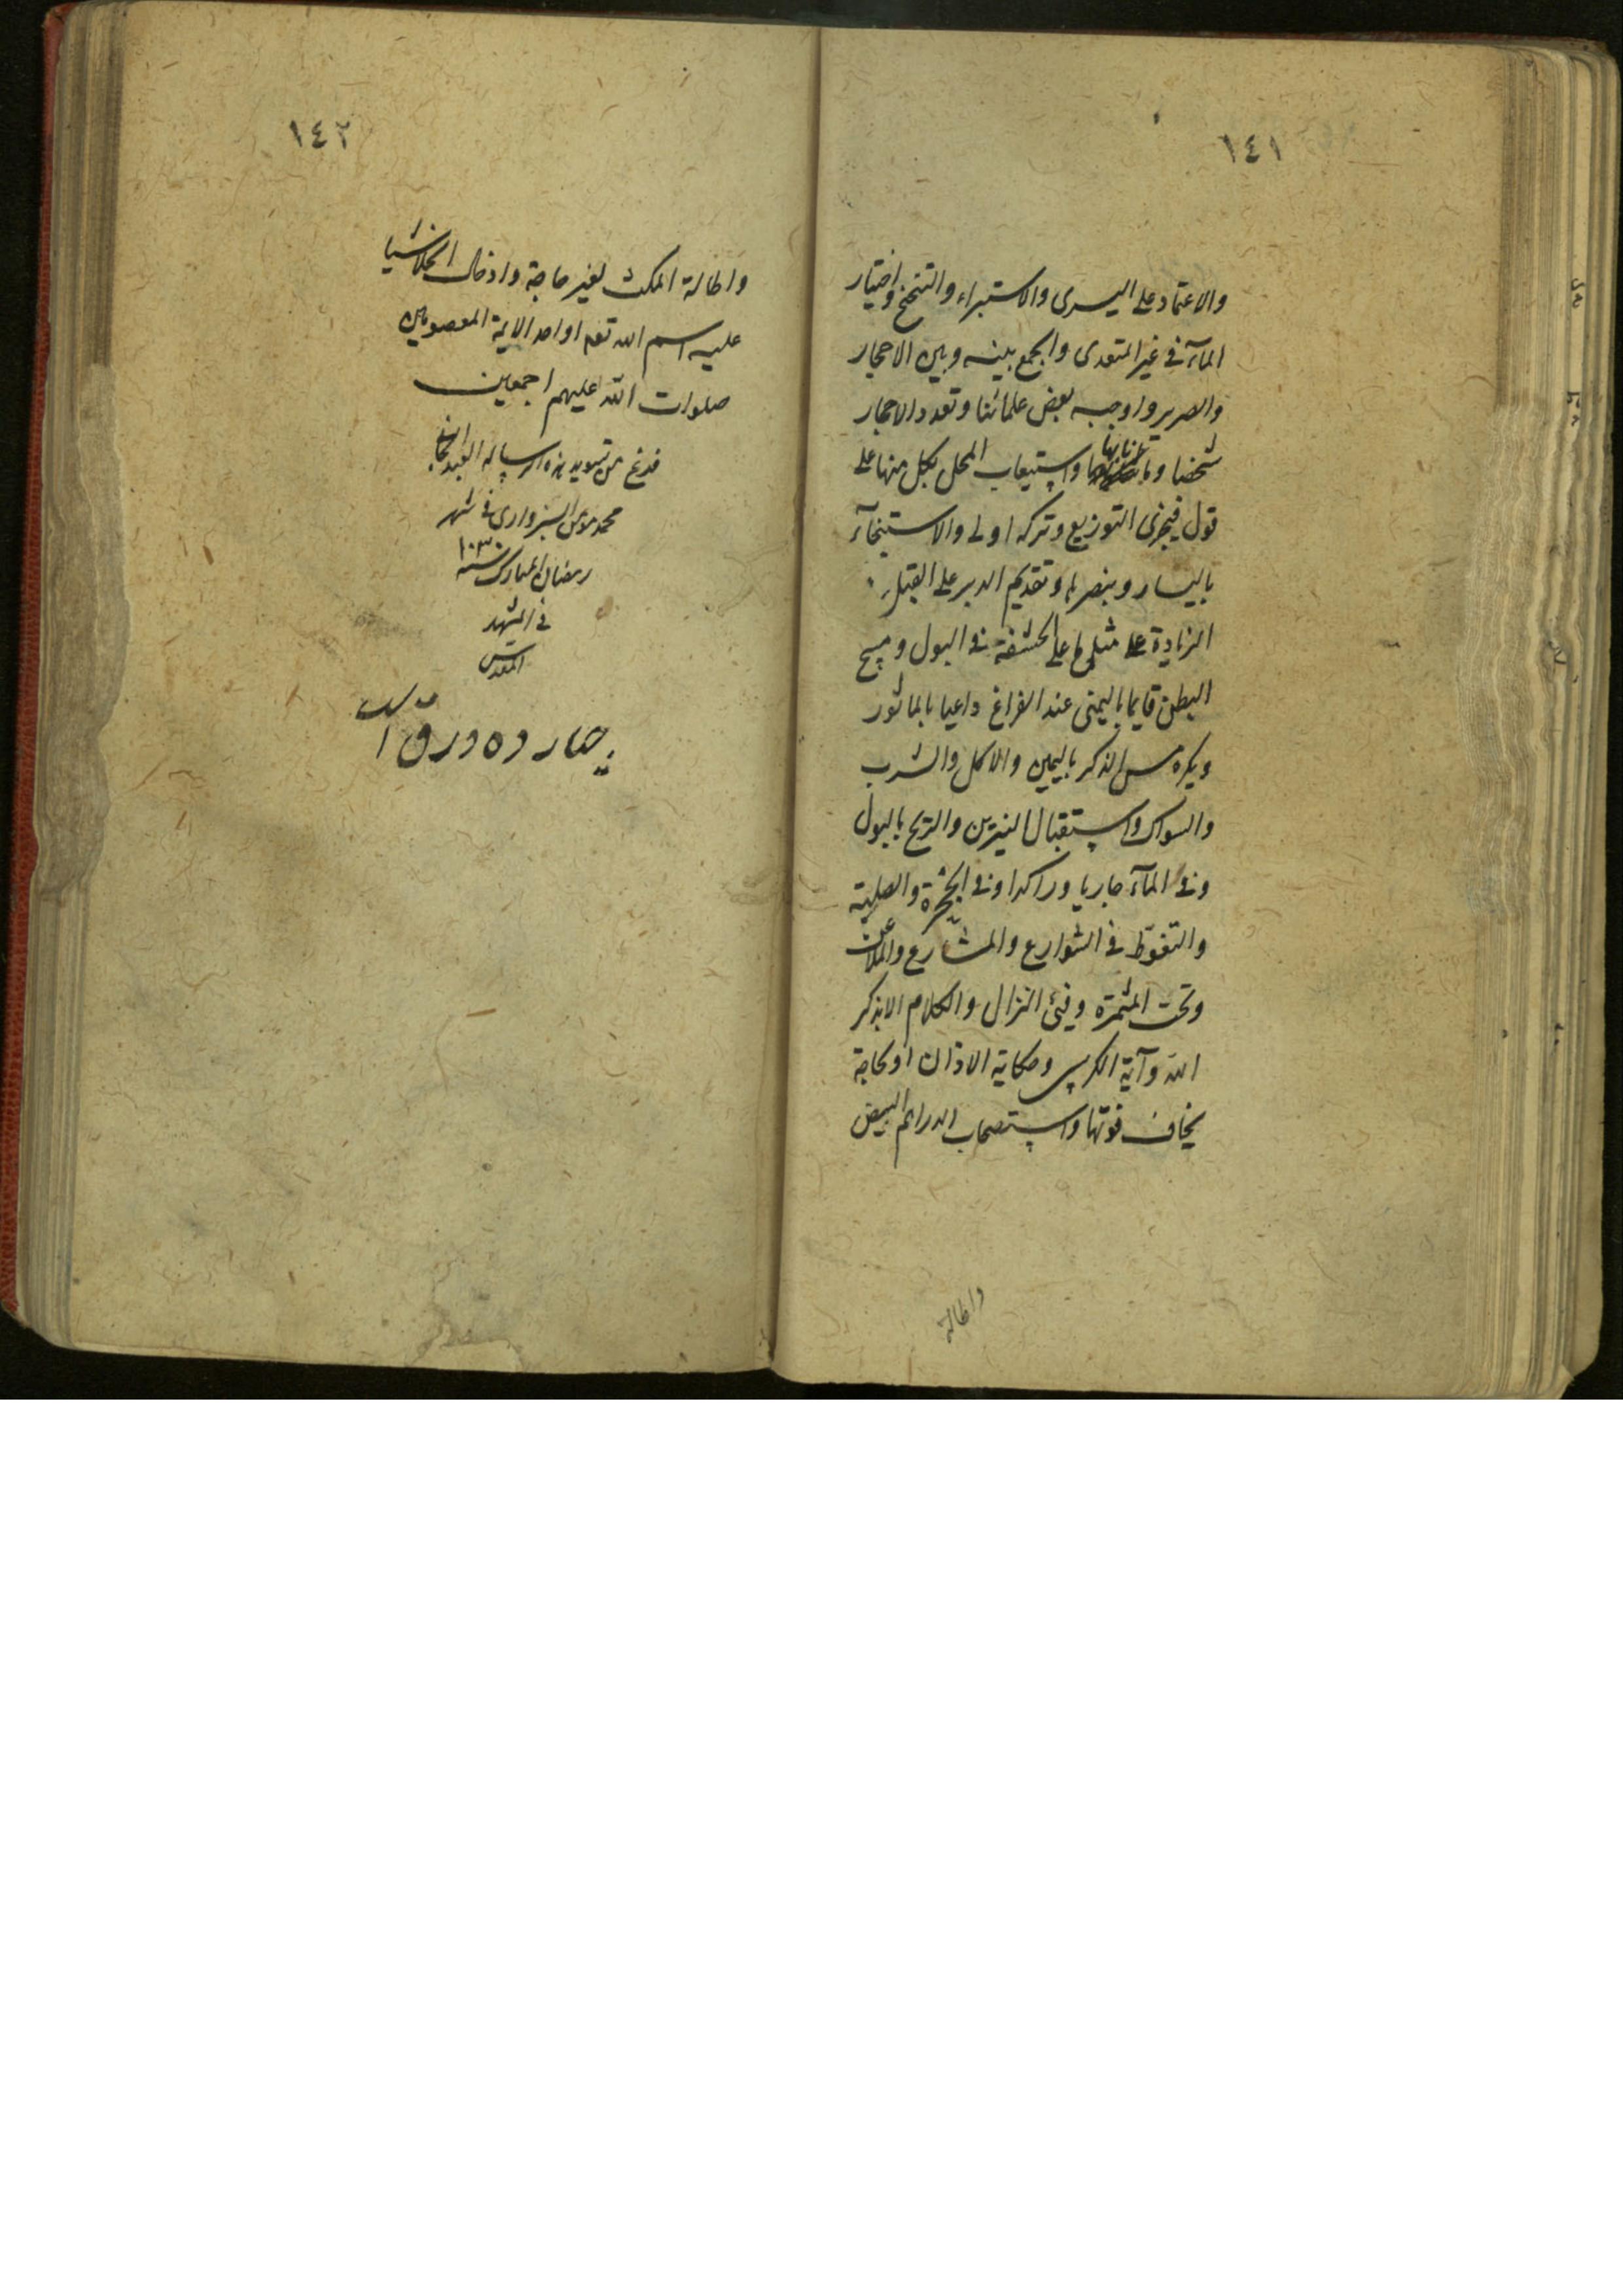 ١٤١
والاعتماد على اليسرى والاستبراء والتنحنح واختيار
المآء في غير المتعدى والجمع بينه وبين الاحجار
والصرير واوجبه بعض علمائنا وتعدد الاحجار
شخصا واستيعاب المحل بكل منها على
قول فيجزى التوزيع وتركه اولى والاستنجآء
باليسار وبنصرها وتقديم الدبر على القبل
الزيادة على مثلى ما على الحشفة فى البول ومسح
البطن قايما باليمنى عند الفراغ داعيا بالماثور
ويكره مس الذكر باليمين والاكل والشرب
والسواك واستقبال النيرين والريح بالبول
وفى المآء جاريا وراكدا وفى الجحرة والصلبة
والتغوّط في الشوارع والمشارع والملاعن
وتحت المثمرة وفيئ النزال والكلام الا بذكر
الله وآية الكرسى وحكاية الاذان او لحاجة
يخاف فوتها واستصحاب الدراهم البيض
واطالة
١٤٢
واطالة المكث لغير حاجة وادخال الخلا شيا
عليه اسم الله تعه او احد الايمة المعصومين
صلوات الله عليهم اجمعين
فرغ من تسويد هذه الرساله العبد
محمد مومن السبزوارى فى شهر
رمضان المبارك سنه ١٠٣٠
فى المشهد
المقدس
چهار ده ورق است